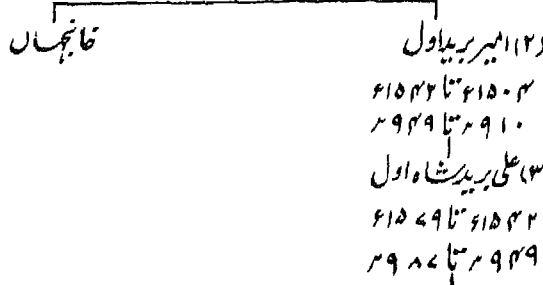 (۲) امیر برید اول
خانجہاں
۱۵۰۴ء تا ۱۵۴۲ء
۹۱۰ھ تا ۹۴۹ھ
(۳) علی برید شاہ اول
۱۵۴۲ء تا ۱۵۷۹ء
۹۴۹ھ تا ۹۸۷ھ